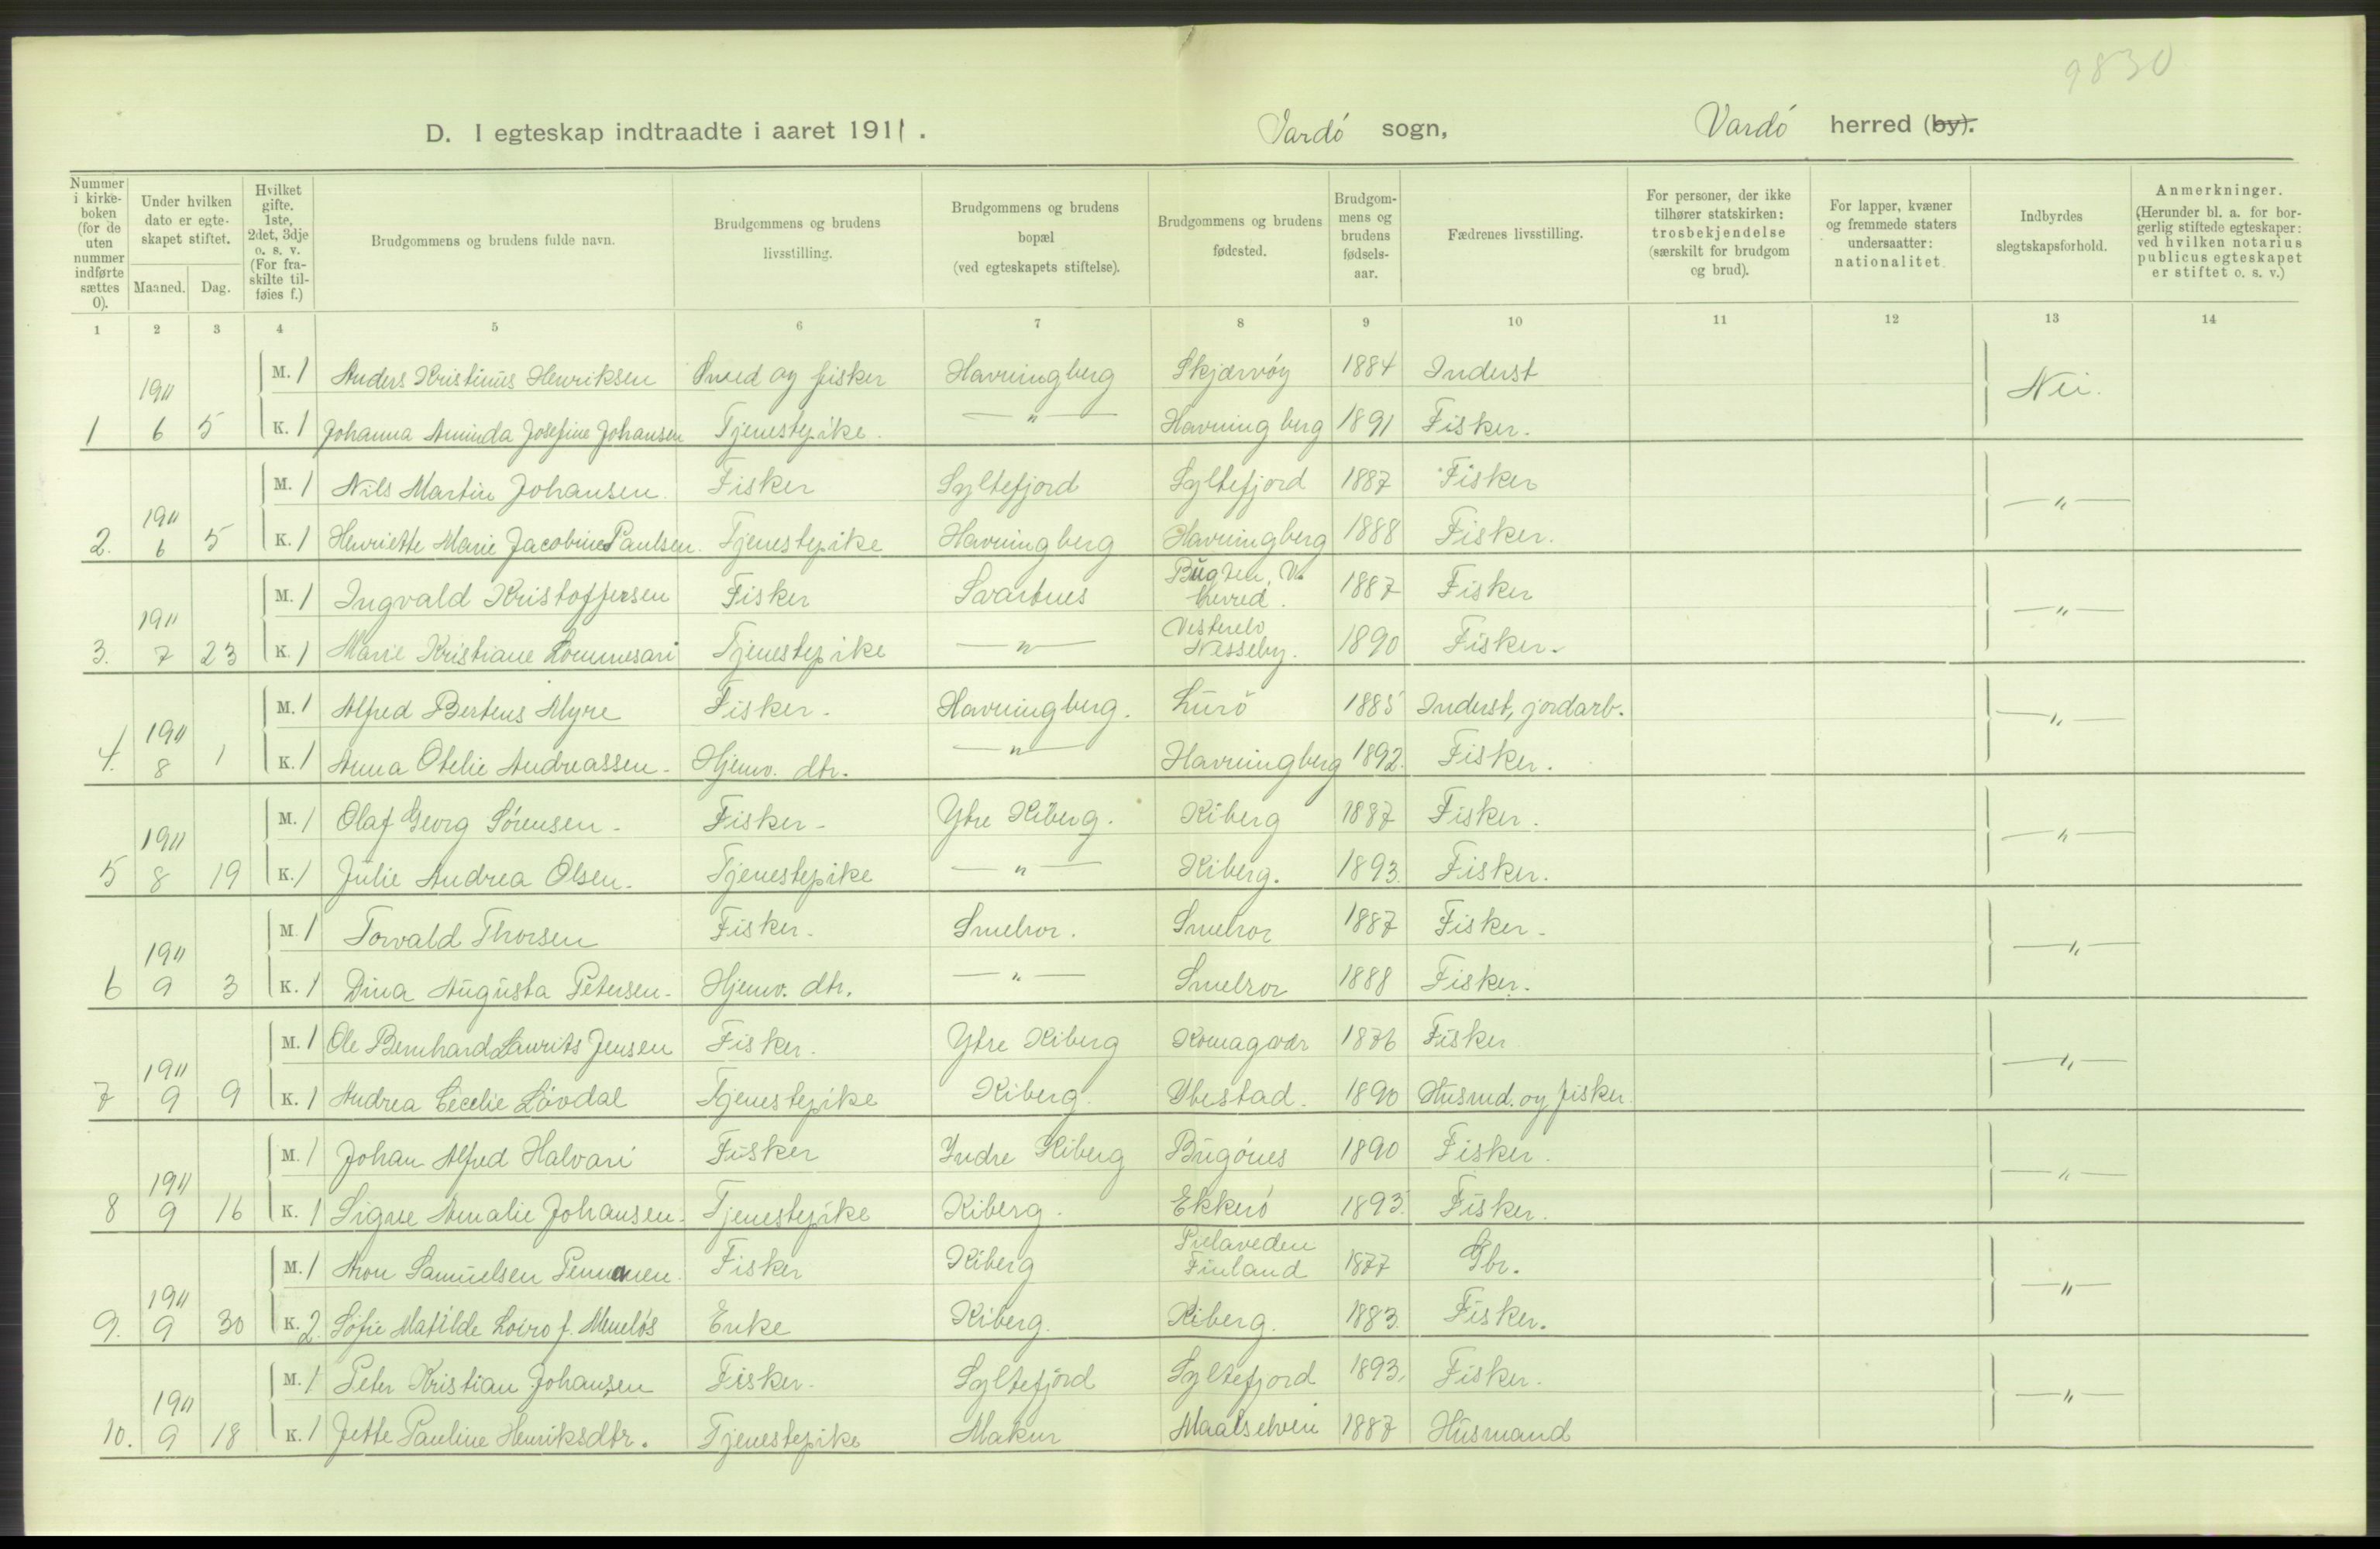 9830
D. I egteskap indtraadte i aaret 1911. Vardö sogn, Vardö herred (by).
Nummer i kirke-boken (for de uten nummer indførte sættes 0). | Under hvilken dato er egte-skapet stiftet. Maaned. Dag. | Hvilket gifte. 1ste, 2det, 3dje o. s. v. (For fra-skilte til-føies f.) | Brudgommens og brudens fulde navn. | Brudgommens og brudens livsstilling. | Brudgommens og brudens bopæl (ved egteskapets stiftelse). | Brudgommens og brudens fødested. | Brudgom-mens og brudens fødsels-aar. | Fædrenes livsstilling. | For personer, der ikke tilhører statskirken: trosbekjendelse (særskilt for brudgom og brud). | For lapper, kvæner og fremmede staters undersaatter: nationalitet. | Indbyrdes slegtskapsforhold. | Anmerkninger. (Herunder bl. a. for bor-gerlig stiftede egteskaper: ved hvilken notarius publicus egteskapet er stiftet o. s. v.)
1 2 3 4 5 6 7 8 9 10 11 12 13 14
1911 M. 1 Anders Kristinus Henriksen Smed og fisker Havningberg Skjærvöy 1884 Inderst Nei.
1 6 5 K. 1 Johanna Aminda Josefine Johansen Tjenestepike. — " — Havningberg 1891 Fisker.
1911 M. 1 Nils Martin Johansen. Fisker Syltefjord Syltefjord 1887 Fisker — " —
2. 6 5 K. 1 Henriette Marie Jacobine Paulsen. Tjenestepike Havningberg Havningberg 1888 Fisker.
1911 M. 1 Ingvald Kristoffersen Fisker Svartnes Bugten, V. herred. 1887 Fisker — " —
3. 7 23 K. 1 Marie Kristiane Lommesari Tjenestepike — " — Vesterelv Nesseby. 1890 Fisker.
1911 M. 1 Alfred Berteus Myre Fisker. Havningberg. Lurö 1885 Inderst, jordarb. — " —
4. 8 1 K. 1 Anna Otelie Andreassen. Hjemv. dtr. — " — Havningberg 1892. Fisker.
1911 M. 1 Olaf Georg Sörensen. Fisker. Ytre Kiberg. Kiberg 1887 Fisker. — " —
5 8 19 K. 1 Julie Andrea Olsen. Tjenestepike — " — Kiberg. 1893. Fisker.
1911 M. 1 Torvald Thorsen Fisker. Smelror. Smelror 1887 Fisker. — " —
6 9 3 K. 1 Dina Augusta Petersen. Hjemv. dtr. — " — Smelror 1888 Fisker.
1911 M. 1 Ole Bernhard Laurits Jensen Fisker. Ytre Kiberg Komagvær 1876 Fisker — " —
7 9 9 K. 1 Andrea Cecelie Lövdal Tjenestepike Kiberg. Ibestad. 1890 Husmd. og fisker.
1911 M. 1 Johan Alfred Halvari Fisker Indre Kiberg Bugönes 1890 Fisker. — " —
8 9 16 K. 1 Signe Amalie Johansen. Tjenestepike Kiberg. Ekkerö 1893. Fisker.
1911 M. 1 Aron Samuelsen Pennanen. Fisker Kiberg Pielaveden Finland 1877 Gbr. — " —
9. 9 30 K. 2. Sofie Matilde Loiro f. Meneløs Enke Kiberg. Kiberg. 1883. Fisker.
1911 M. 1 Peter Kristian Johansen Fisker. Syltefjord Syltefjord 1893. Fisker. — " —
10. 9 18 K. 1 Jette Pauline Henriksdtr. Tjenestepike Makur Maalselven 1887 Husmand